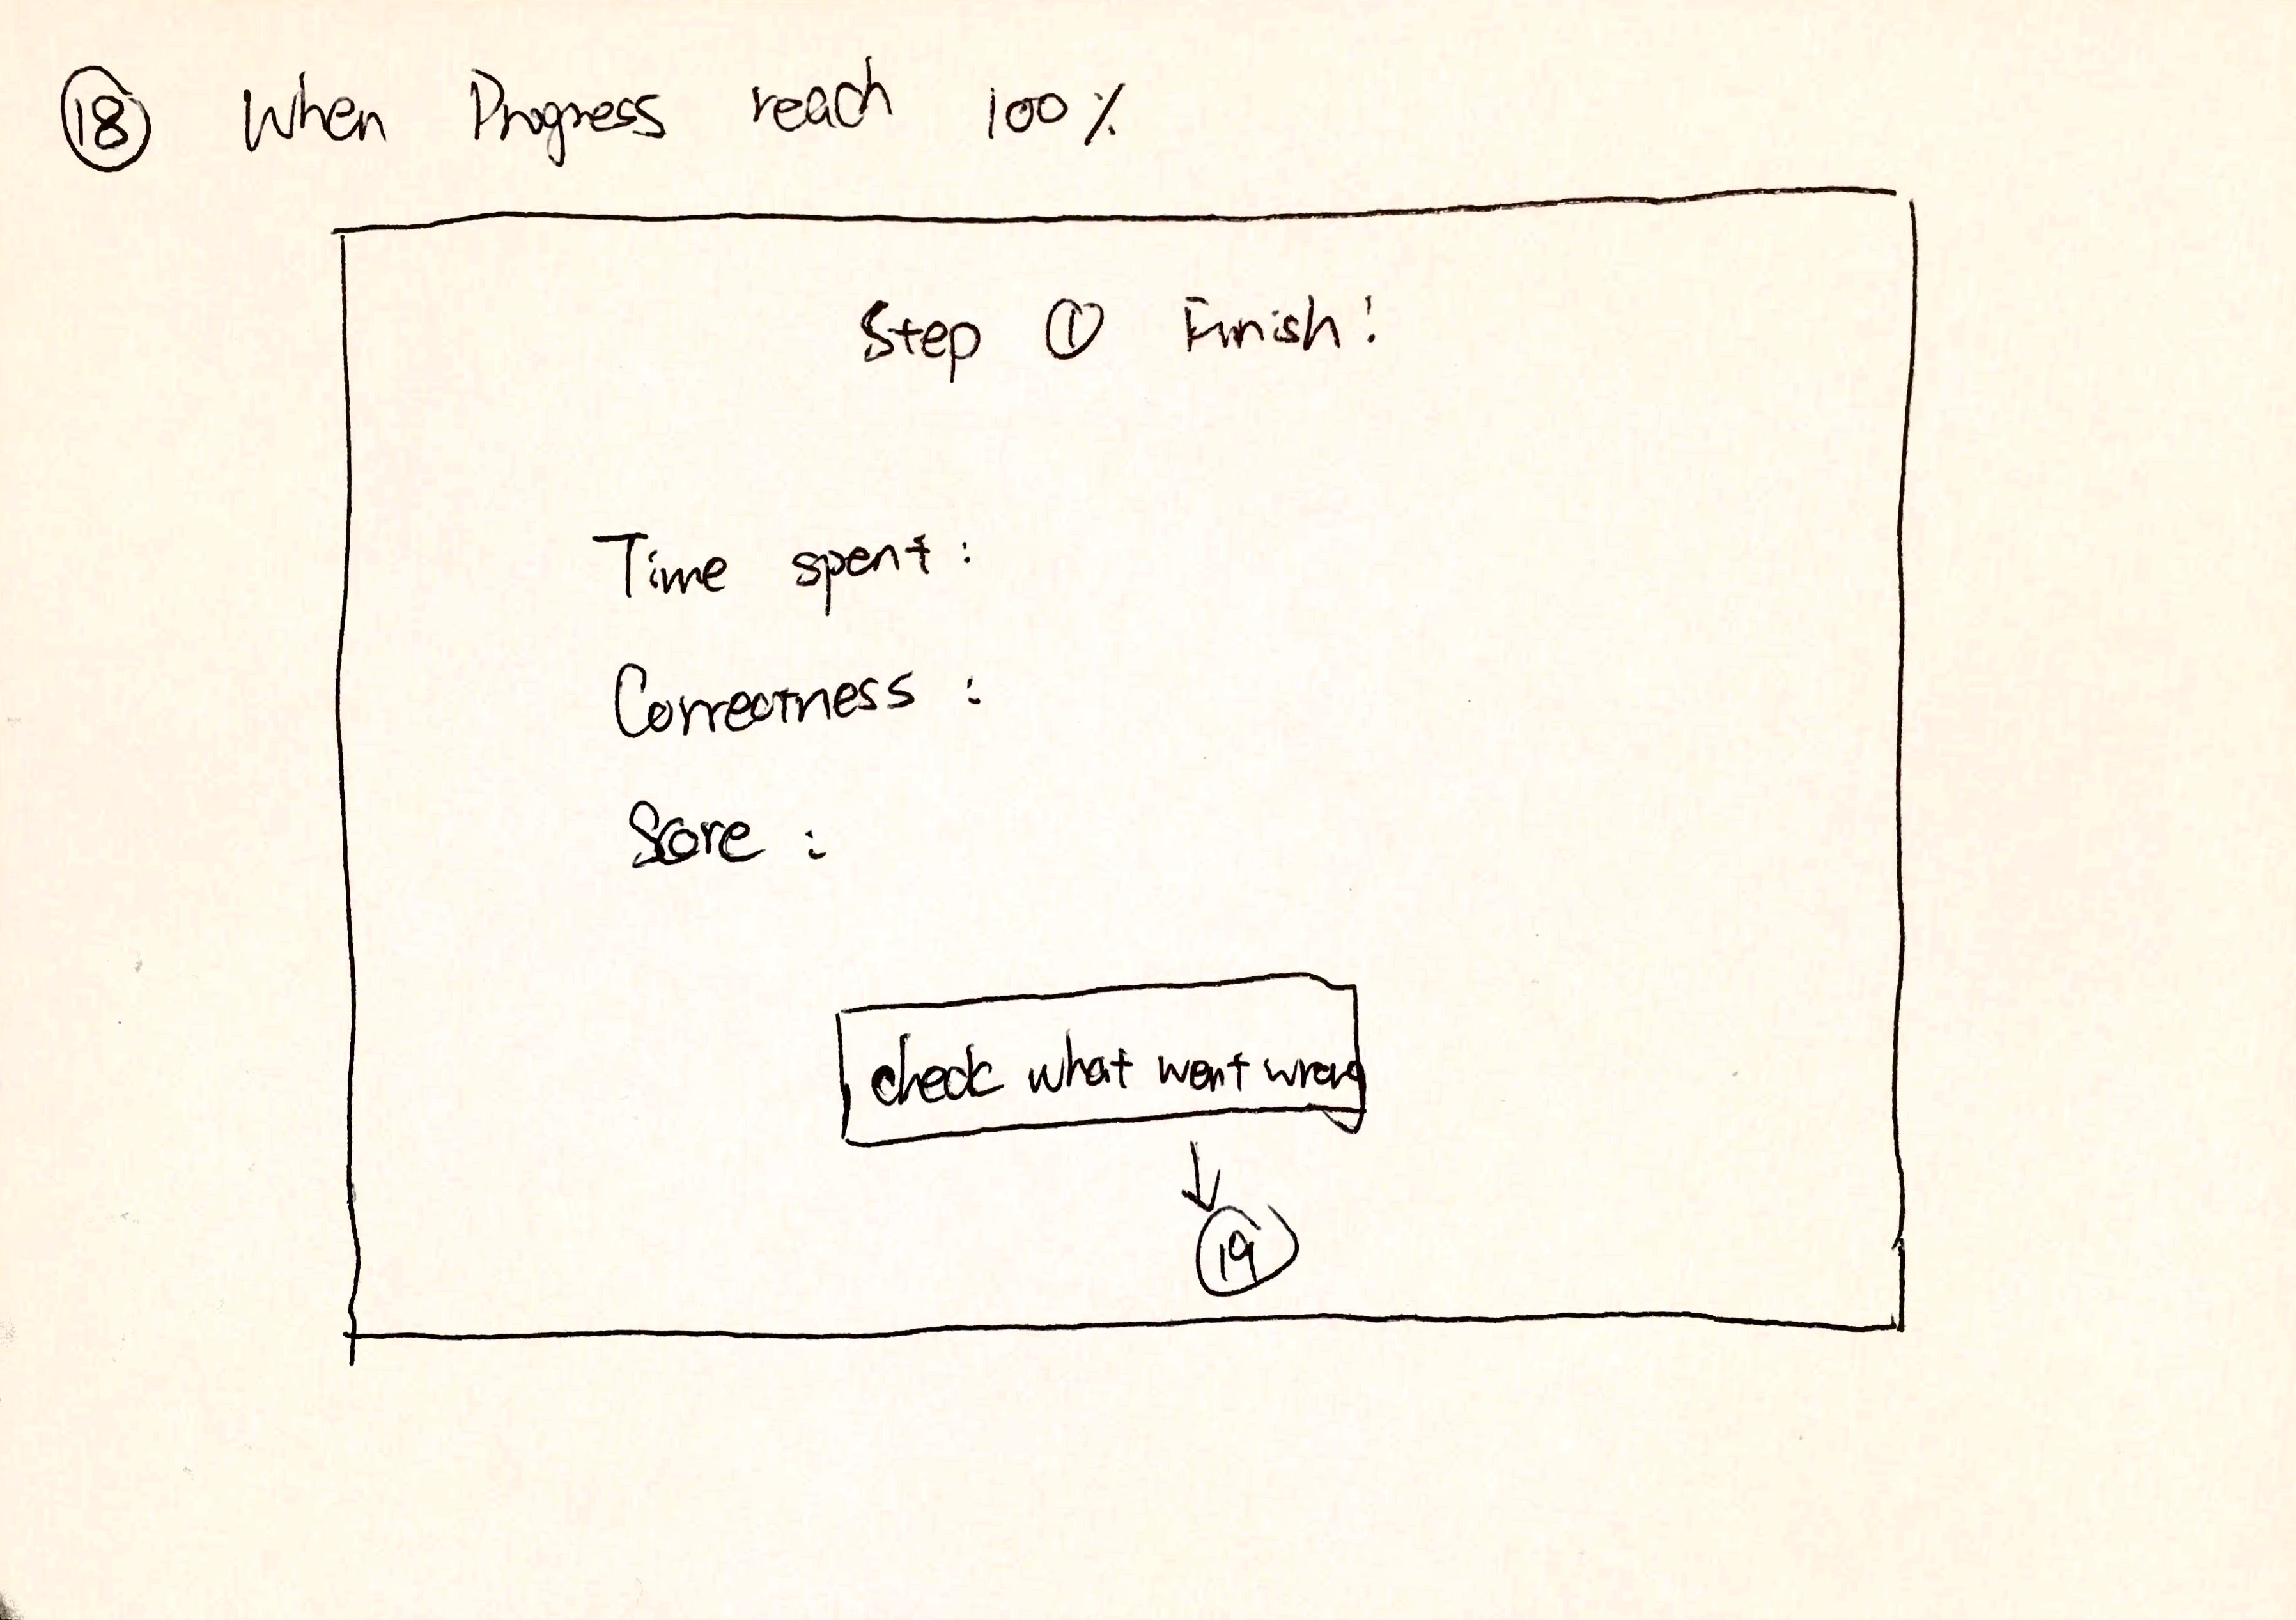 ⑱ When Progress reach 100%
Step ① Finish!
Time spent:
Correctness :
Score :
check what went wrong
⑲